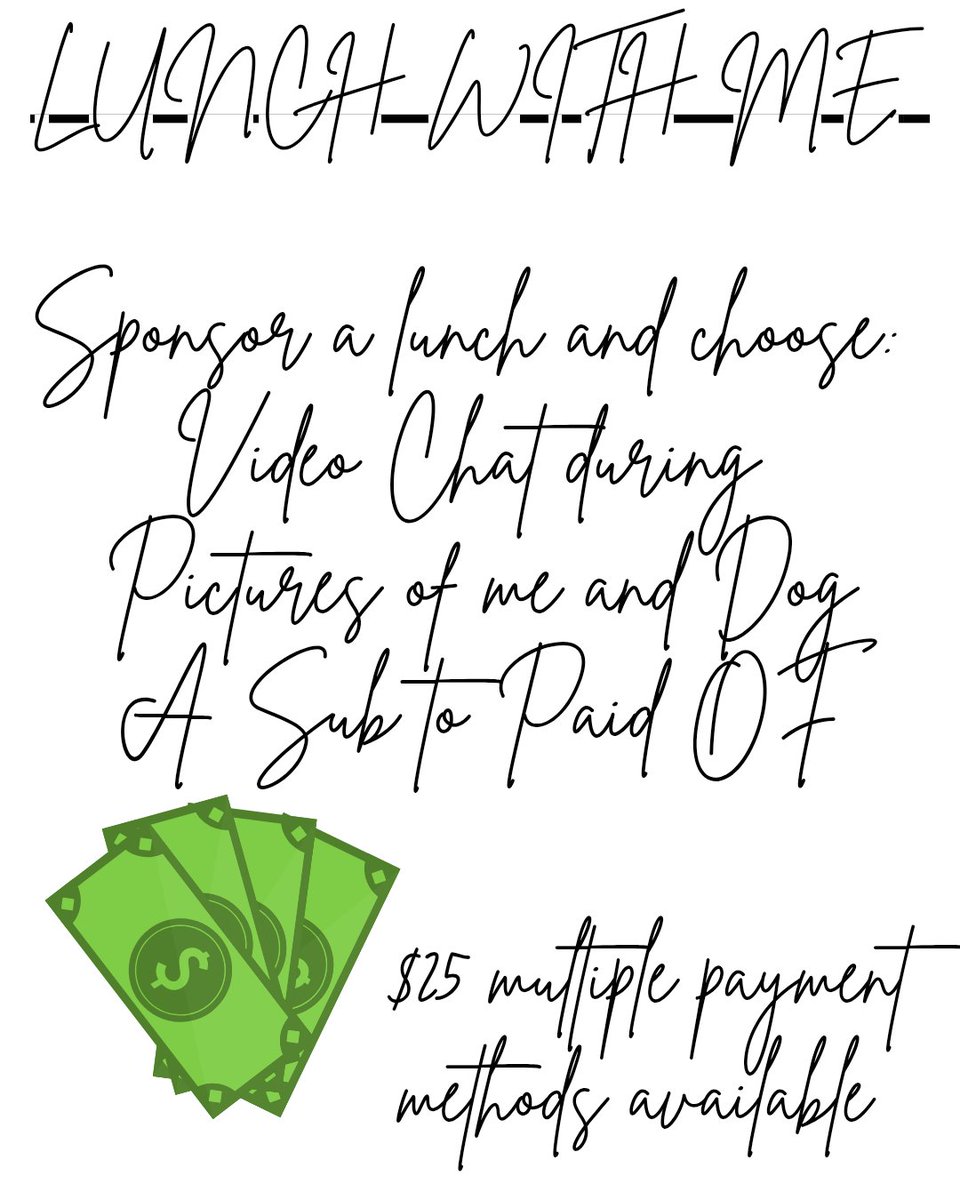 LUNCH WITH ME
Sponsor a lunch and choose:
Video Chat during
Pictures of me and Dog
A Sub to Paid OF
$25 multiple payment
methods available